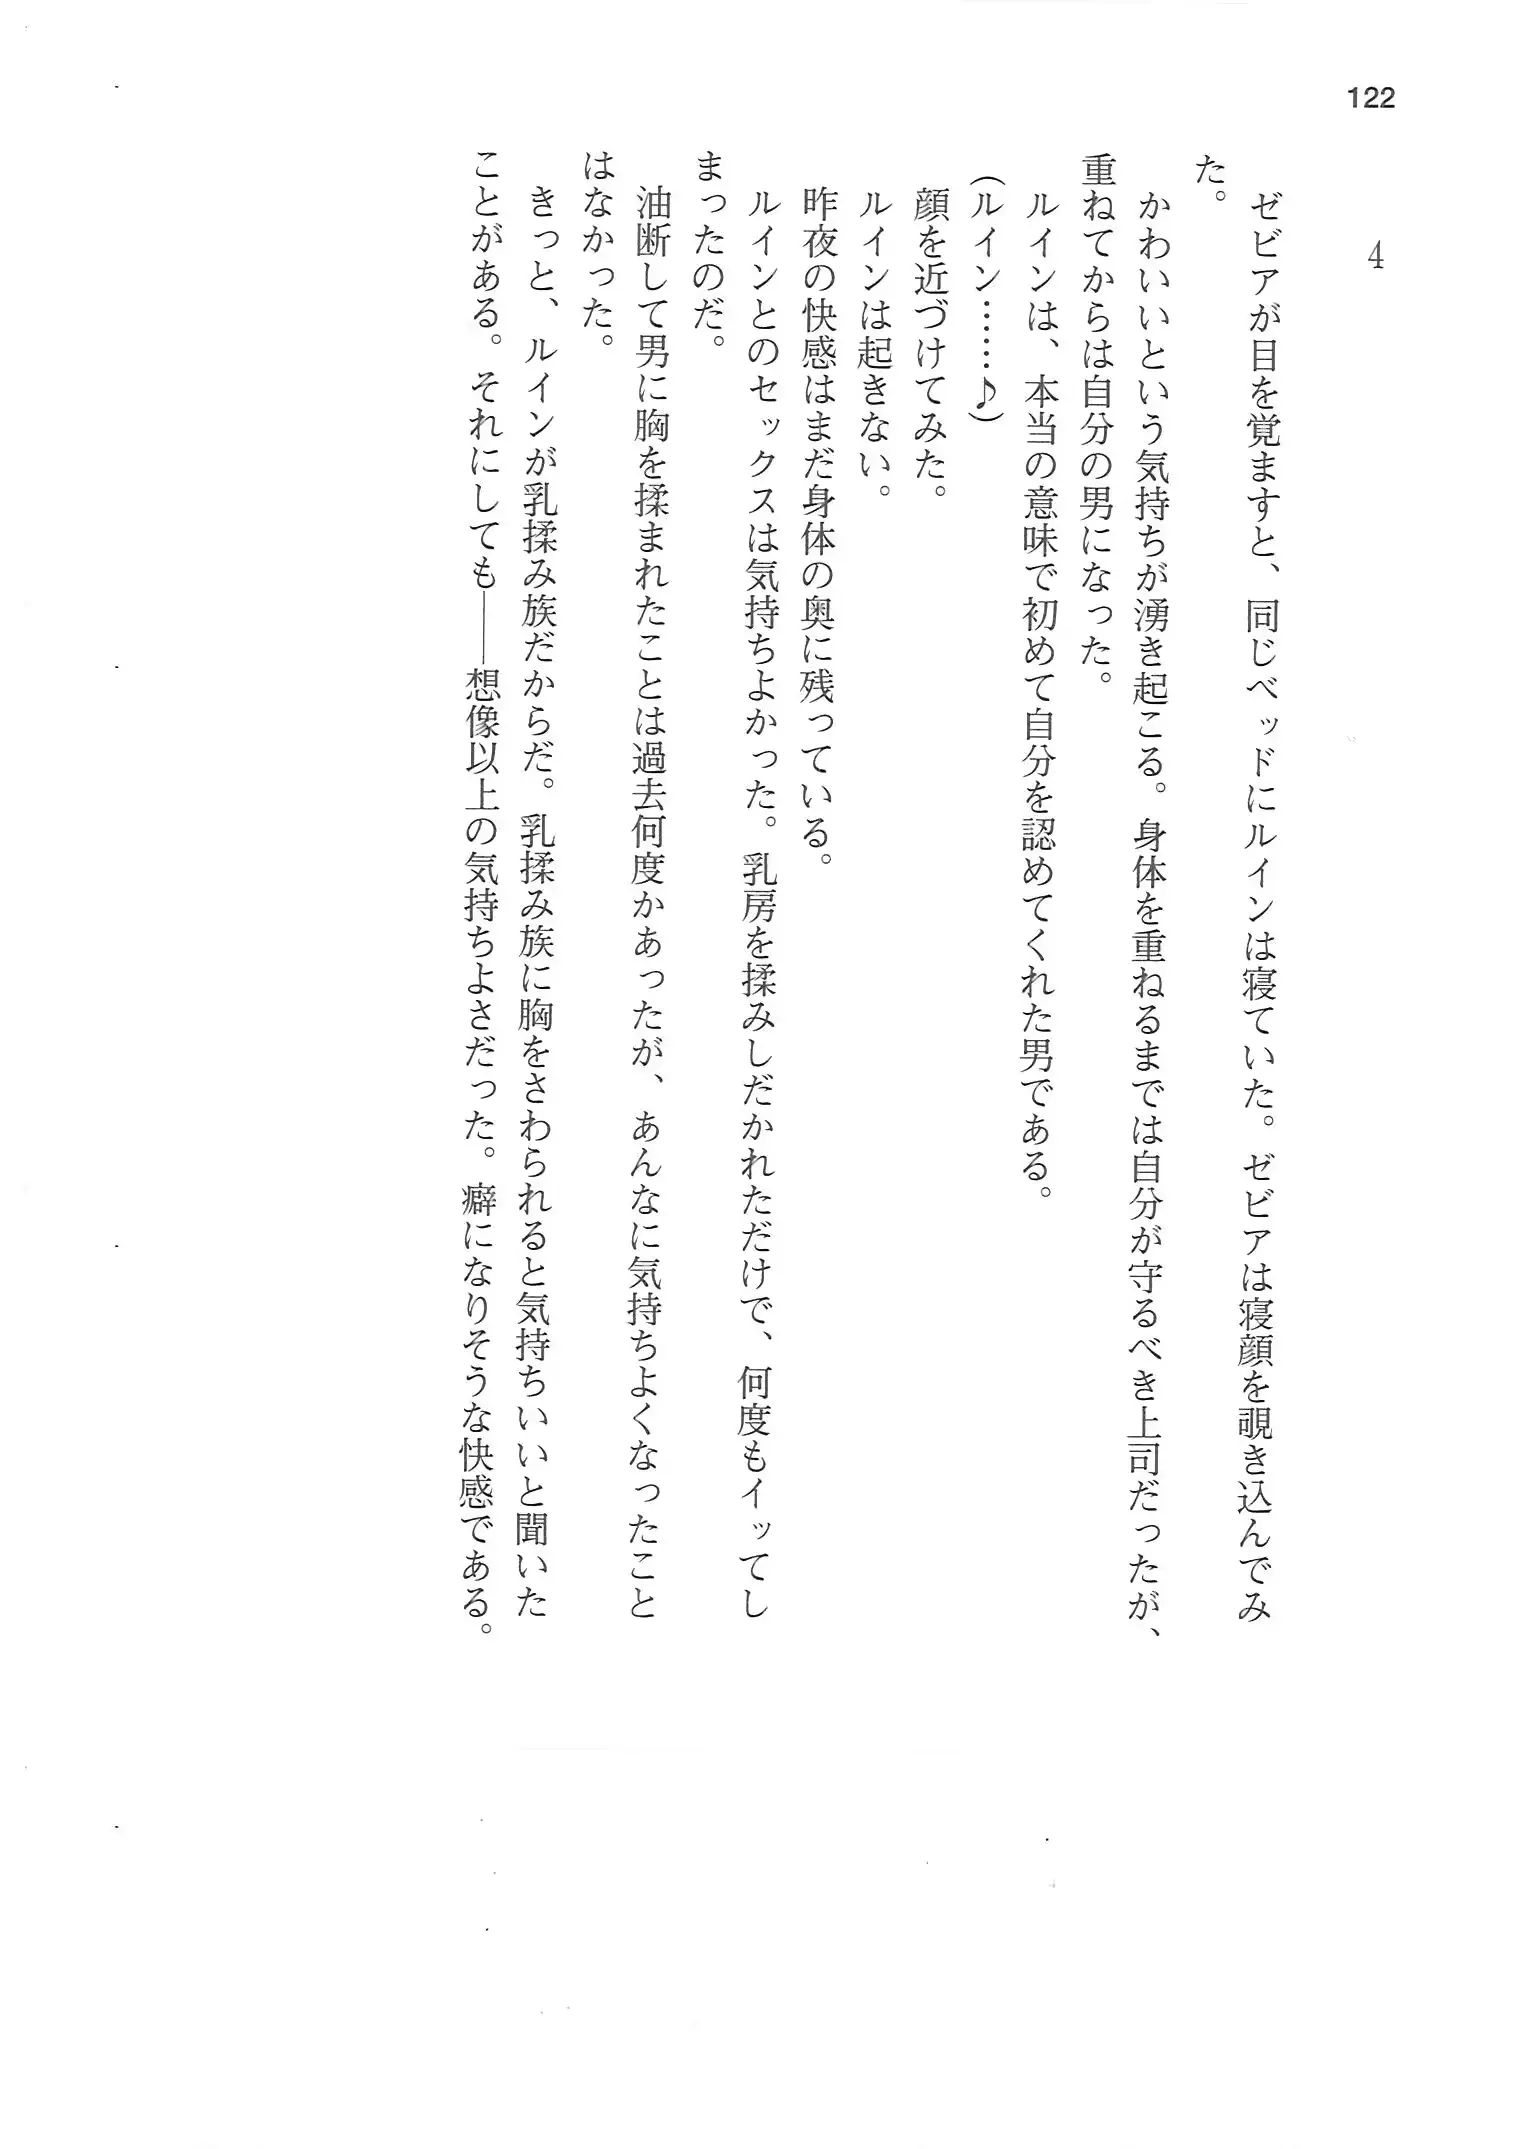 122
4
　ゼビアが目を覚ますと、同じベッドにルインは寝ていた。ゼビアは寝顔を覗き込んでみ
た。
　かわいいという気持ちが湧き起こる。身体を重ねるまでは自分が守るべき上司だったが、
重ねてからは自分の男になった。
　ルインは、本当の意味で初めて自分を認めてくれた男である。
（ルイン……♪）
　顔を近づけてみた。
　ルインは起きない。
　昨夜の快感はまだ身体の奥に残っている。
　ルインとのセックスは気持ちよかった。乳房を揉みしだかれただけで、何度もイッてし
まったのだ。
　油断して男に胸を揉まれたことは過去何度かあったが、あんなに気持ちよくなったこと
はなかった。
　きっと、ルインが乳揉み族だからだ。乳揉み族に胸をさわられると気持ちいいと聞いた
ことがある。それにしても――想像以上の気持ちよさだった。癖になりそうな快感である。